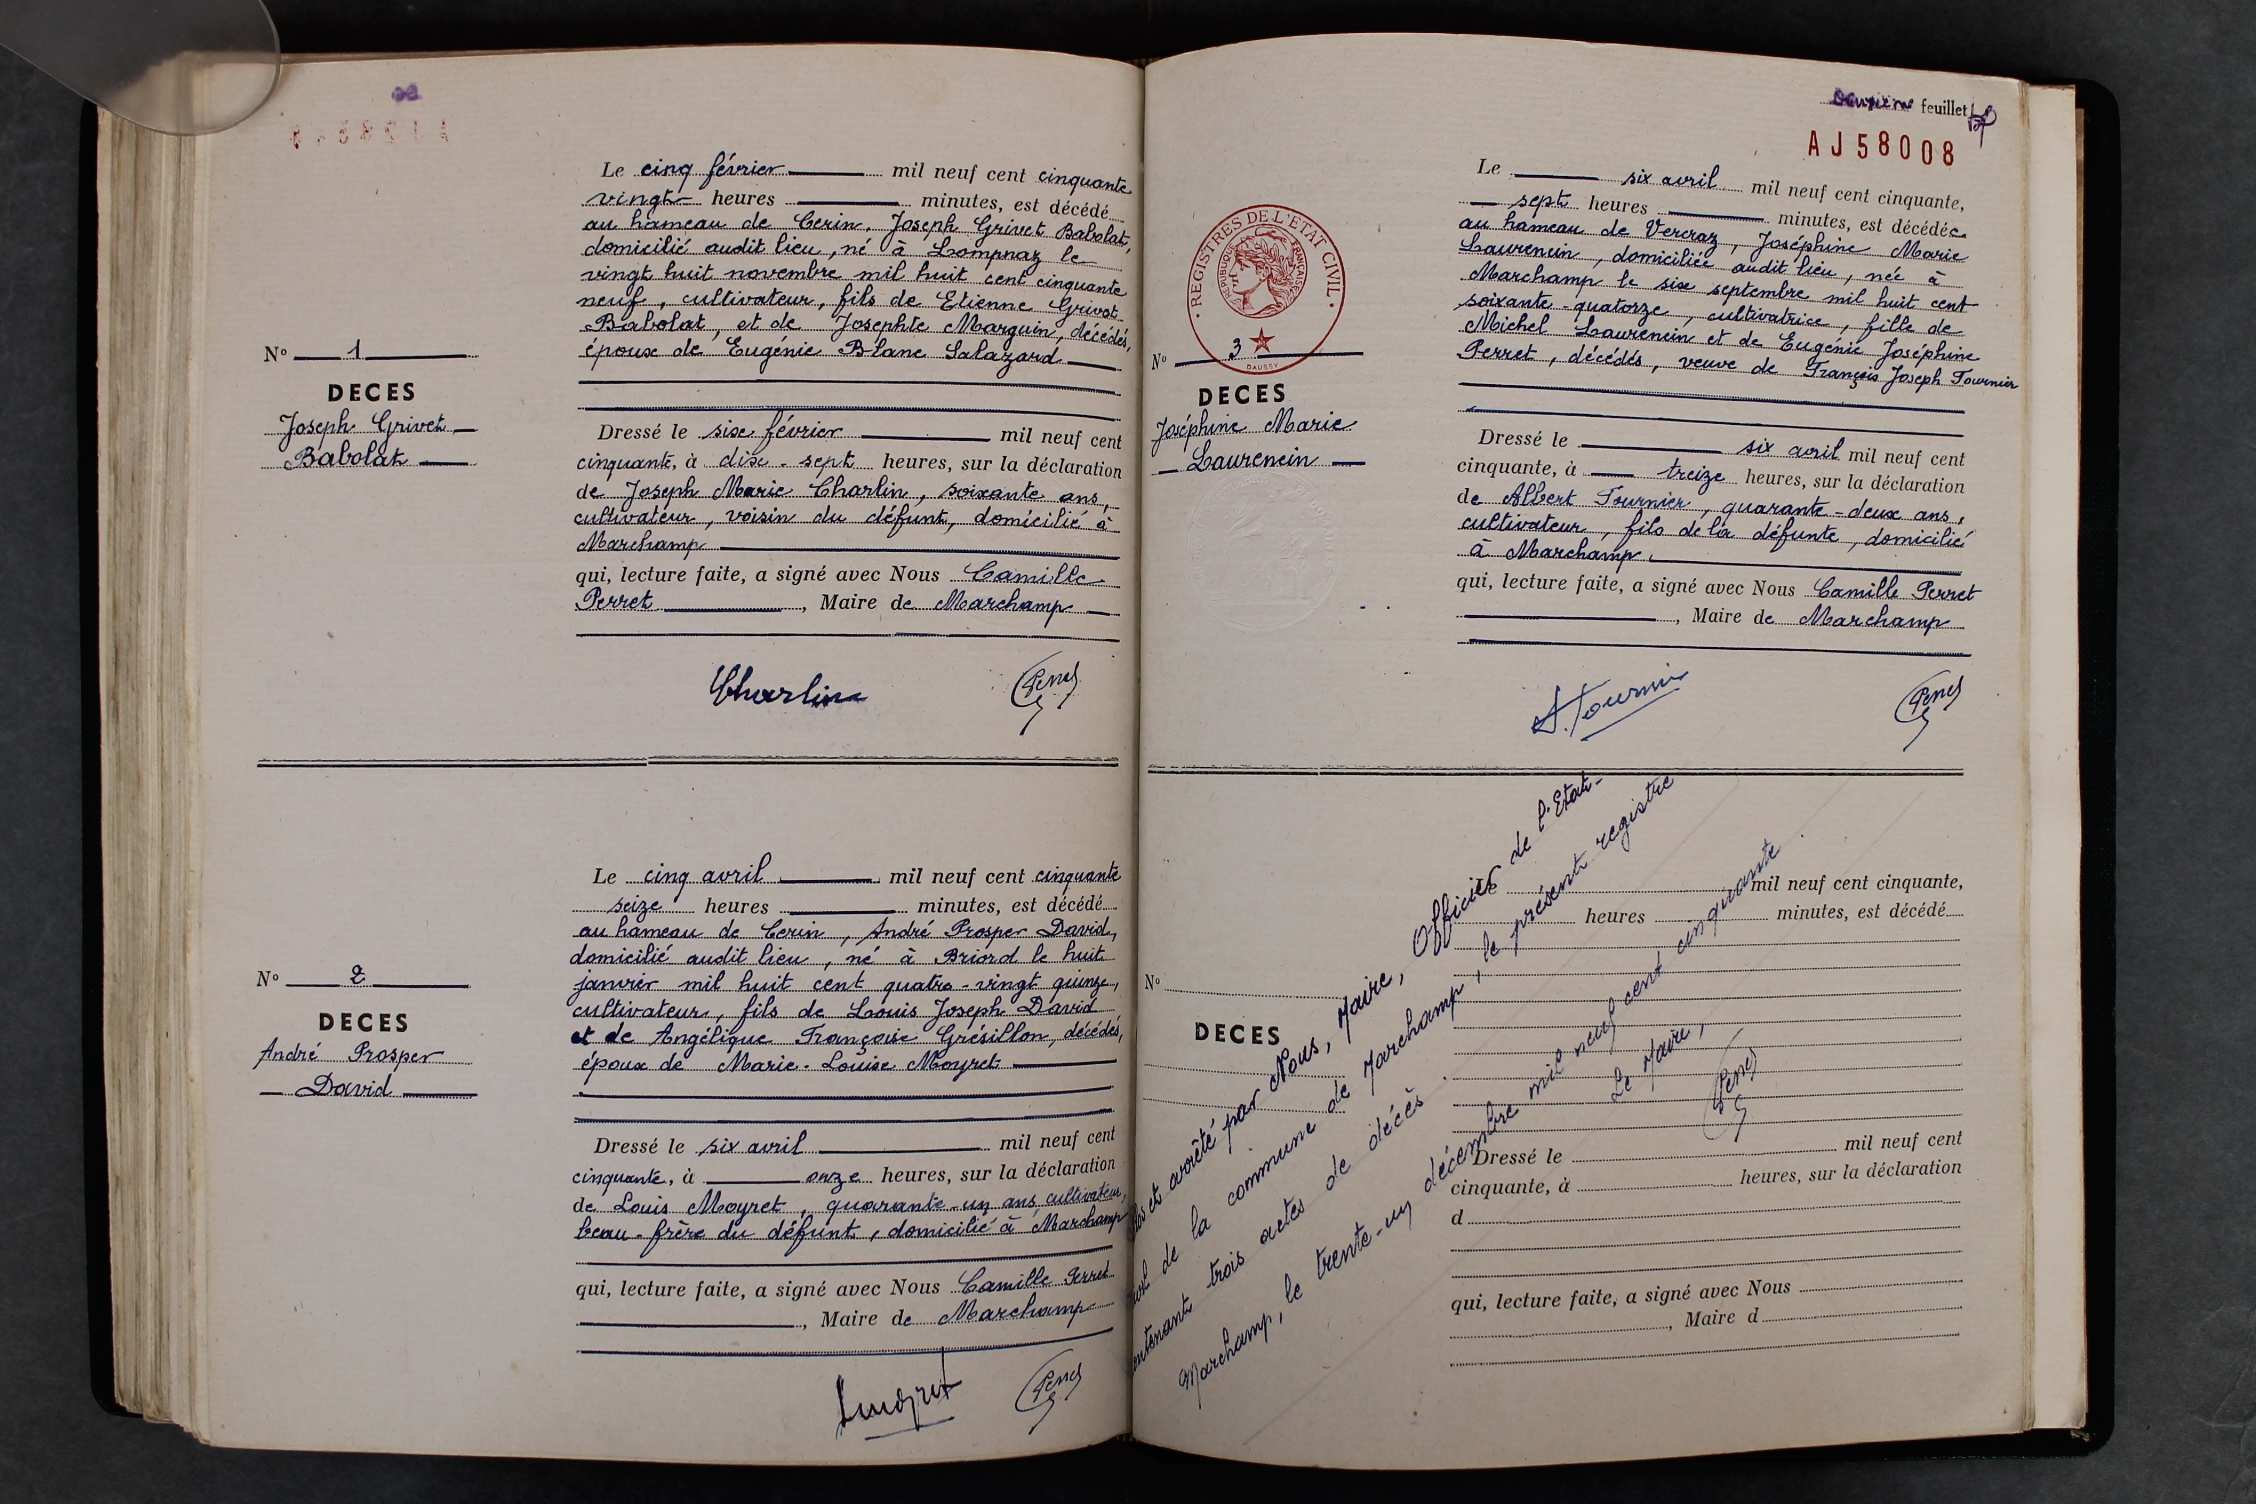 Le cinq février mil neuf cent cinquante
vingt heures minutes, est décédé
au hameau de Cerin, Joseph Grivet Babolat,
domicilié audit lieu, né à Lompnaz le
vingt huit novembre mil huit cent cinquante
neuf, cultivateur, fils de Etienne Grivet
Babolat, et de Josephte Marguin, décédés,
époux de Eugénie Blanc Salazard
N° 1
DECES
Joseph Grivet
Babolat
Dressé le six février mil neuf cent
cinquante, à dix-sept heures, sur la déclaration
de Joseph Marie Charlin, soixante ans,
cultivateur, voisin du défunt, domicilié à
Marchamp
qui, lecture faite, a signé avec Nous Camille
Perret, Maire de Marchamp
Charlin
Perret
Le cinq avril mil neuf cent cinquante
seize heures minutes, est décédé
au hameau de Cerin, André Prosper David,
domicilié audit lieu, né à Briord le huit
janvier mil huit cent quatre-vingt quinze,
cultivateur, fils de Louis Joseph David
et de Angélique Françoise Grésillon, décédés,
époux de Marie-Louise Moyret
N° 2
DECES
André Prosper
David
Dressé le six avril mil neuf cent
cinquante, à onze heures, sur la déclaration
de Louis Moyret, quarante-un ans, cultivateur,
beau-frère du défunt, domicilié à Marchamp
qui, lecture faite, a signé avec Nous Camille Perret
, Maire de Marchamp
Lmoyret
Perret
feuillet
AJ58008
REGISTRES DE L'ETAT CIVIL
REPUBLIQUE FRANÇAISE
DAUSSY
Le six avril mil neuf cent cinquante,
sept heures minutes, est décédée
au hameau de Vercraz, Joséphine Marie
Laurencin, domiciliée audit lieu, née à
Marchamp le six septembre mil huit cent
soixante-quatorze, cultivatrice, fille de
Michel Laurencin et de Eugénie Joséphine
Perret, décédés, veuve de François Joseph Tournier
N° 3
DECES
Joséphine Marie
Laurencin
Dressé le six avril mil neuf cent
cinquante, à treize heures, sur la déclaration
de Albert Tournier, quarante-deux ans,
cultivateur, fils de la défunte, domicilié
à Marchamp.
qui, lecture faite, a signé avec Nous Camille Perret
, Maire de Marchamp
A. Tournier
Perret
Le mil neuf cent cinquante,
heures minutes, est décédé
N°
DECES
Dressé le mil neuf cent
cinquante, à heures, sur la déclaration
d
qui, lecture faite, a signé avec Nous
, Maire d
et arrêté par Nous, Maire, Officier de l'Etat-
de la commune de Marchamp, le présent registre
trois actes de décès.
Marchamp, le trente-un décembre mil neuf cent cinquante
Le Maire,
Perret